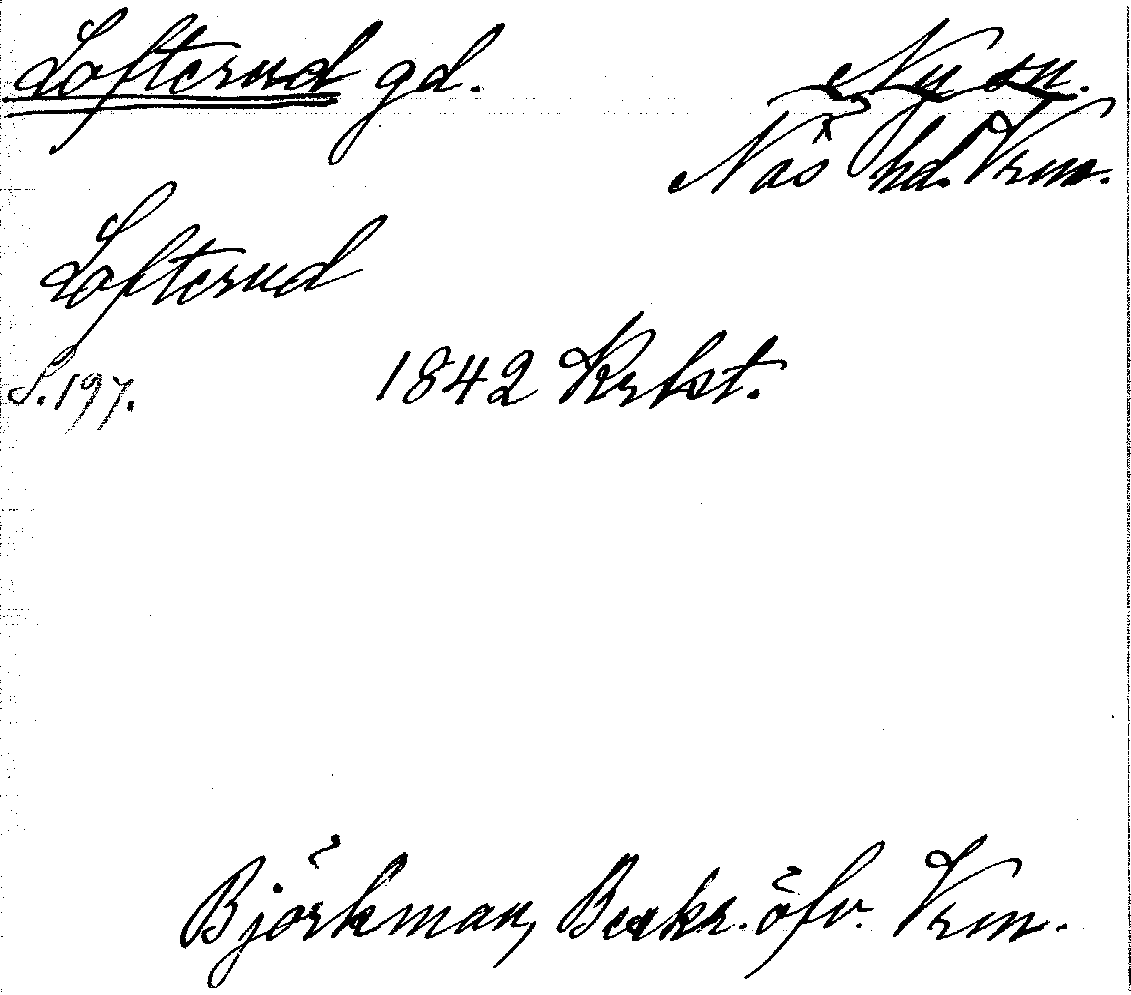 Lofterud gd. Ny sn.
Näs hd. Vrm.
Lofterud
S. 197. 1842 Krbst.
Björkman, Beskr. öfv. Vrm.